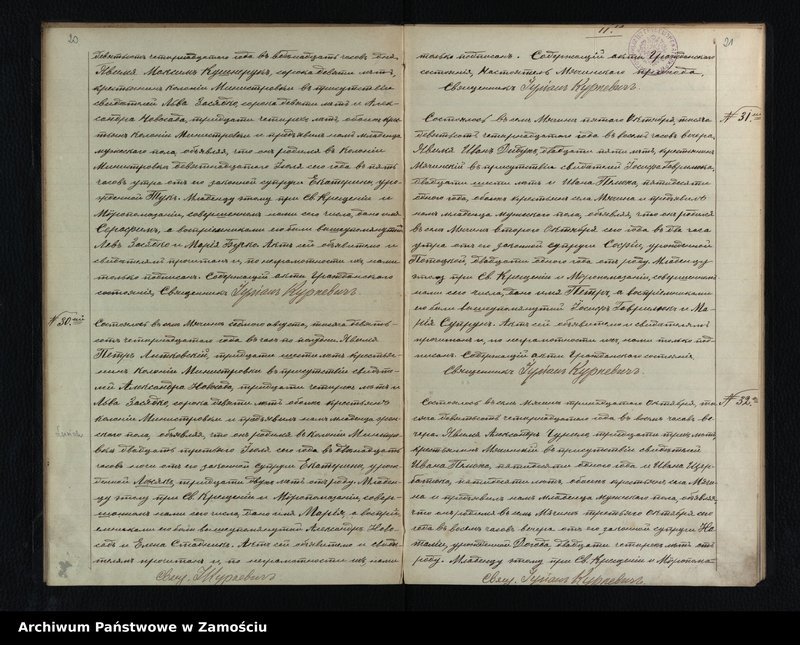 20
девятьсотъ четырнадцатаго года въ двенадцать часовъ дня.
Явился Максимъ Кушнерукъ, сорока девяти лѣтъ,
крестьянинъ колоніи Министровки въ присутствіи
свидѣтелей Льва Засядко, сорока девяти лѣтъ и Алек-
сандра Новосада, тридцати четырехъ лѣтъ, обоихъ кре-
стьянъ колоніи Министровки и предъявилъ намъ младенца
мужскаго пола, объявляя, что онъ родился въ колоніи
Министровка девятнадцатаго Іюля сего года въ пять
часовъ утра отъ его законной супруги Екатерины, уро-
жденной Тукъ. Младенцу этому при Св. Крещеніи и
Мѵропомазаніи, совершенномъ нами сего числа, дано имя
а воспріемниками его были вышеупомянутый
Левъ Засядко и Марія Актъ сей объявителю и
свидѣтелямъ прочитанъ и, по неграмотности ихъ, нами
только подписанъ. Содержащій акты Гражданскаго
состоянія, Священникъ Куркевичъ
№ 30.ый
Состоялось въ селѣ Мячинъ августа, тысяча девять-
сотъ четырнадцатаго года въ часъ по полудни. Явился
Петръ тридцати шести лѣтъ крестья-
нинъ колоніи Министровки въ присутствіи свидѣте-
лей Александра Новосада, тридцати четырехъ лѣтъ и
Льва Засядко, сорока девяти лѣтъ обоихъ крестьянъ
колоніи Министровки и предъявилъ намъ младенца жен-
скаго пола, объявляя, что онъ родился въ колоніи Министро-
вка двадцать третьяго Іюля сего года въ двенадцать
часовъ ночи отъ его законной супруги Екатерины, урож-
денной тридцати двухъ лѣтъ отъ роду. Младен-
цу этому при Св. Крещеніи и Мѵропомазаніи, совер-
шенномъ нами сего числа, дано имя Марія, а воспрі-
емниками его были вышеупомянутый Александръ Ново-
садъ и Елена Актъ сей объявителю и свидѣ-
телямъ прочитанъ и, по неграмотности ихъ, нами
Свящ. Куркевичъ
21
только подписанъ. Содержащій акты Гражданскаго
состоянія, Настоятель Мячинскаго прихода,
Священникъ Куркевичъ
№ 31.ый
Состоялось въ селѣ Мячинъ пятаго Октября, тысяча
девятьсотъ четырнадцатаго года въ восемь часовъ вечера.
Явился Иванъ двадцати пяти лѣтъ, крестьянинъ
Мячинскій въ присутствіи свидѣтелей Іосифа Гаврилюка,
двадцати шести лѣтъ и Ивана пятидесяти
одного года, обоихъ крестьянъ села Мячина и предъявилъ
намъ младенца мужскаго пола, объявляя, что онъ родился
въ селѣ Мячинъ втораго Октября сего года въ два часа
утра отъ его законной супруги Софіи, урожденной
двадцати одного года отъ роду. Младенцу
этому при Св. Крещеніи и Мѵропомазаніи, совершенномъ
нами сего числа, дано имя Петръ, а воспріемниками
его были вышеупомянутый Іосифъ Гаврилюкъ и Ма-
рія Супрунъ. Актъ сей объявителю и свидѣтелямъ
прочитанъ и, по неграмотности ихъ, нами только под-
писанъ. Содержащій акты Гражданскаго состоянія
Священникъ Куркевичъ.
№ 32.ой
Состоялось въ селѣ Мячинъ тринадцатаго Октября, ты-
сяча девятьсотъ четырнадцатаго года въ восемь часовъ ве-
чера. Явился Александръ тридцати трехъ лѣтъ,
крестьянинъ Мячинскій въ присутствіи свидѣтелей
Ивана пятидесяти одного года и Ивана
пятидесяти лѣтъ, обоихъ крестьянъ села Мячи-
на и предъявилъ намъ младенца мужскаго пола, объявляя,
что онъ родился въ селѣ Мячинъ третьяго Октября сего
года въ восемь часовъ вечера отъ его законной супруги На-
таліи, урожденной двадцати четырехъ лѣтъ отъ
роду. Младенцу этому при Св. Крещеніи и Мѵропома-
Свящ. Куркевичъ
Archiwum Państwowe w Zamościu